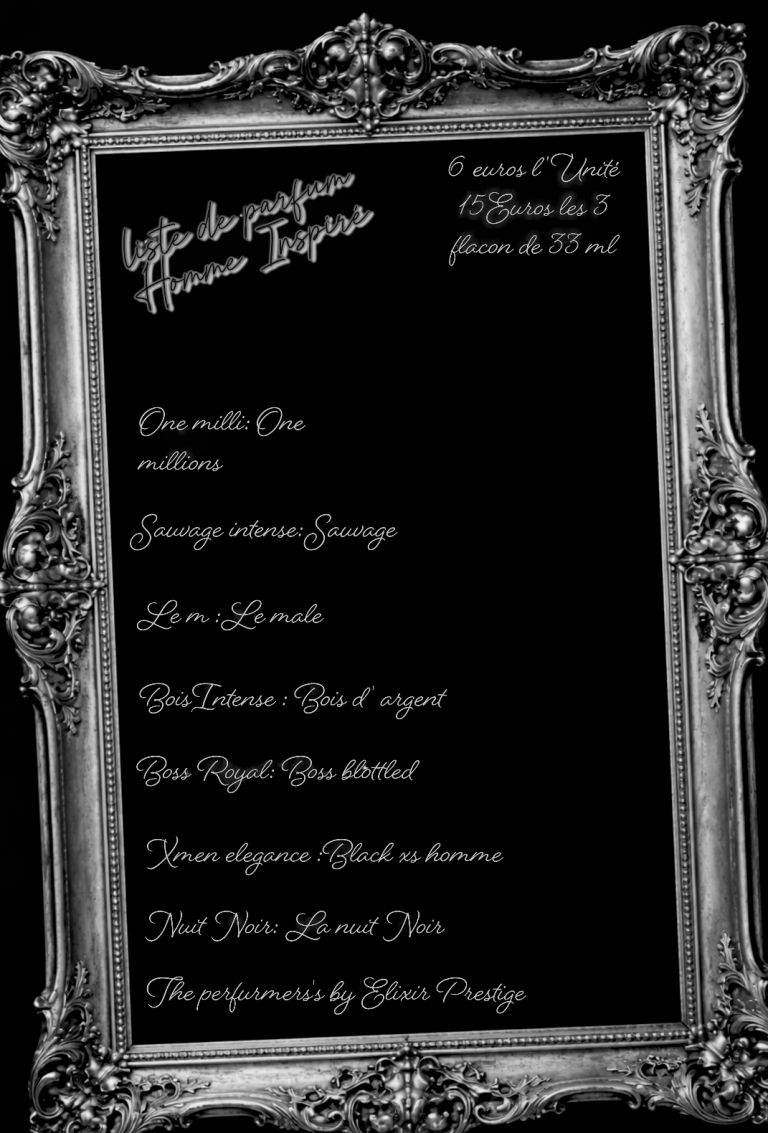 liste de parfum
Homme Inspiré
6 euros l'Unité
15Euros les 3
flacon de 33 ml
One milli: One
millions
Sauvage intense:Sauvage
Le m :Le male
BoisIntense : Bois d' argent
Boss Royal: Boss blottled
Xmen elegance :Black xs homme
Nuit Noir: La nuit Noir
The perfurmers's by Elixir Prestige